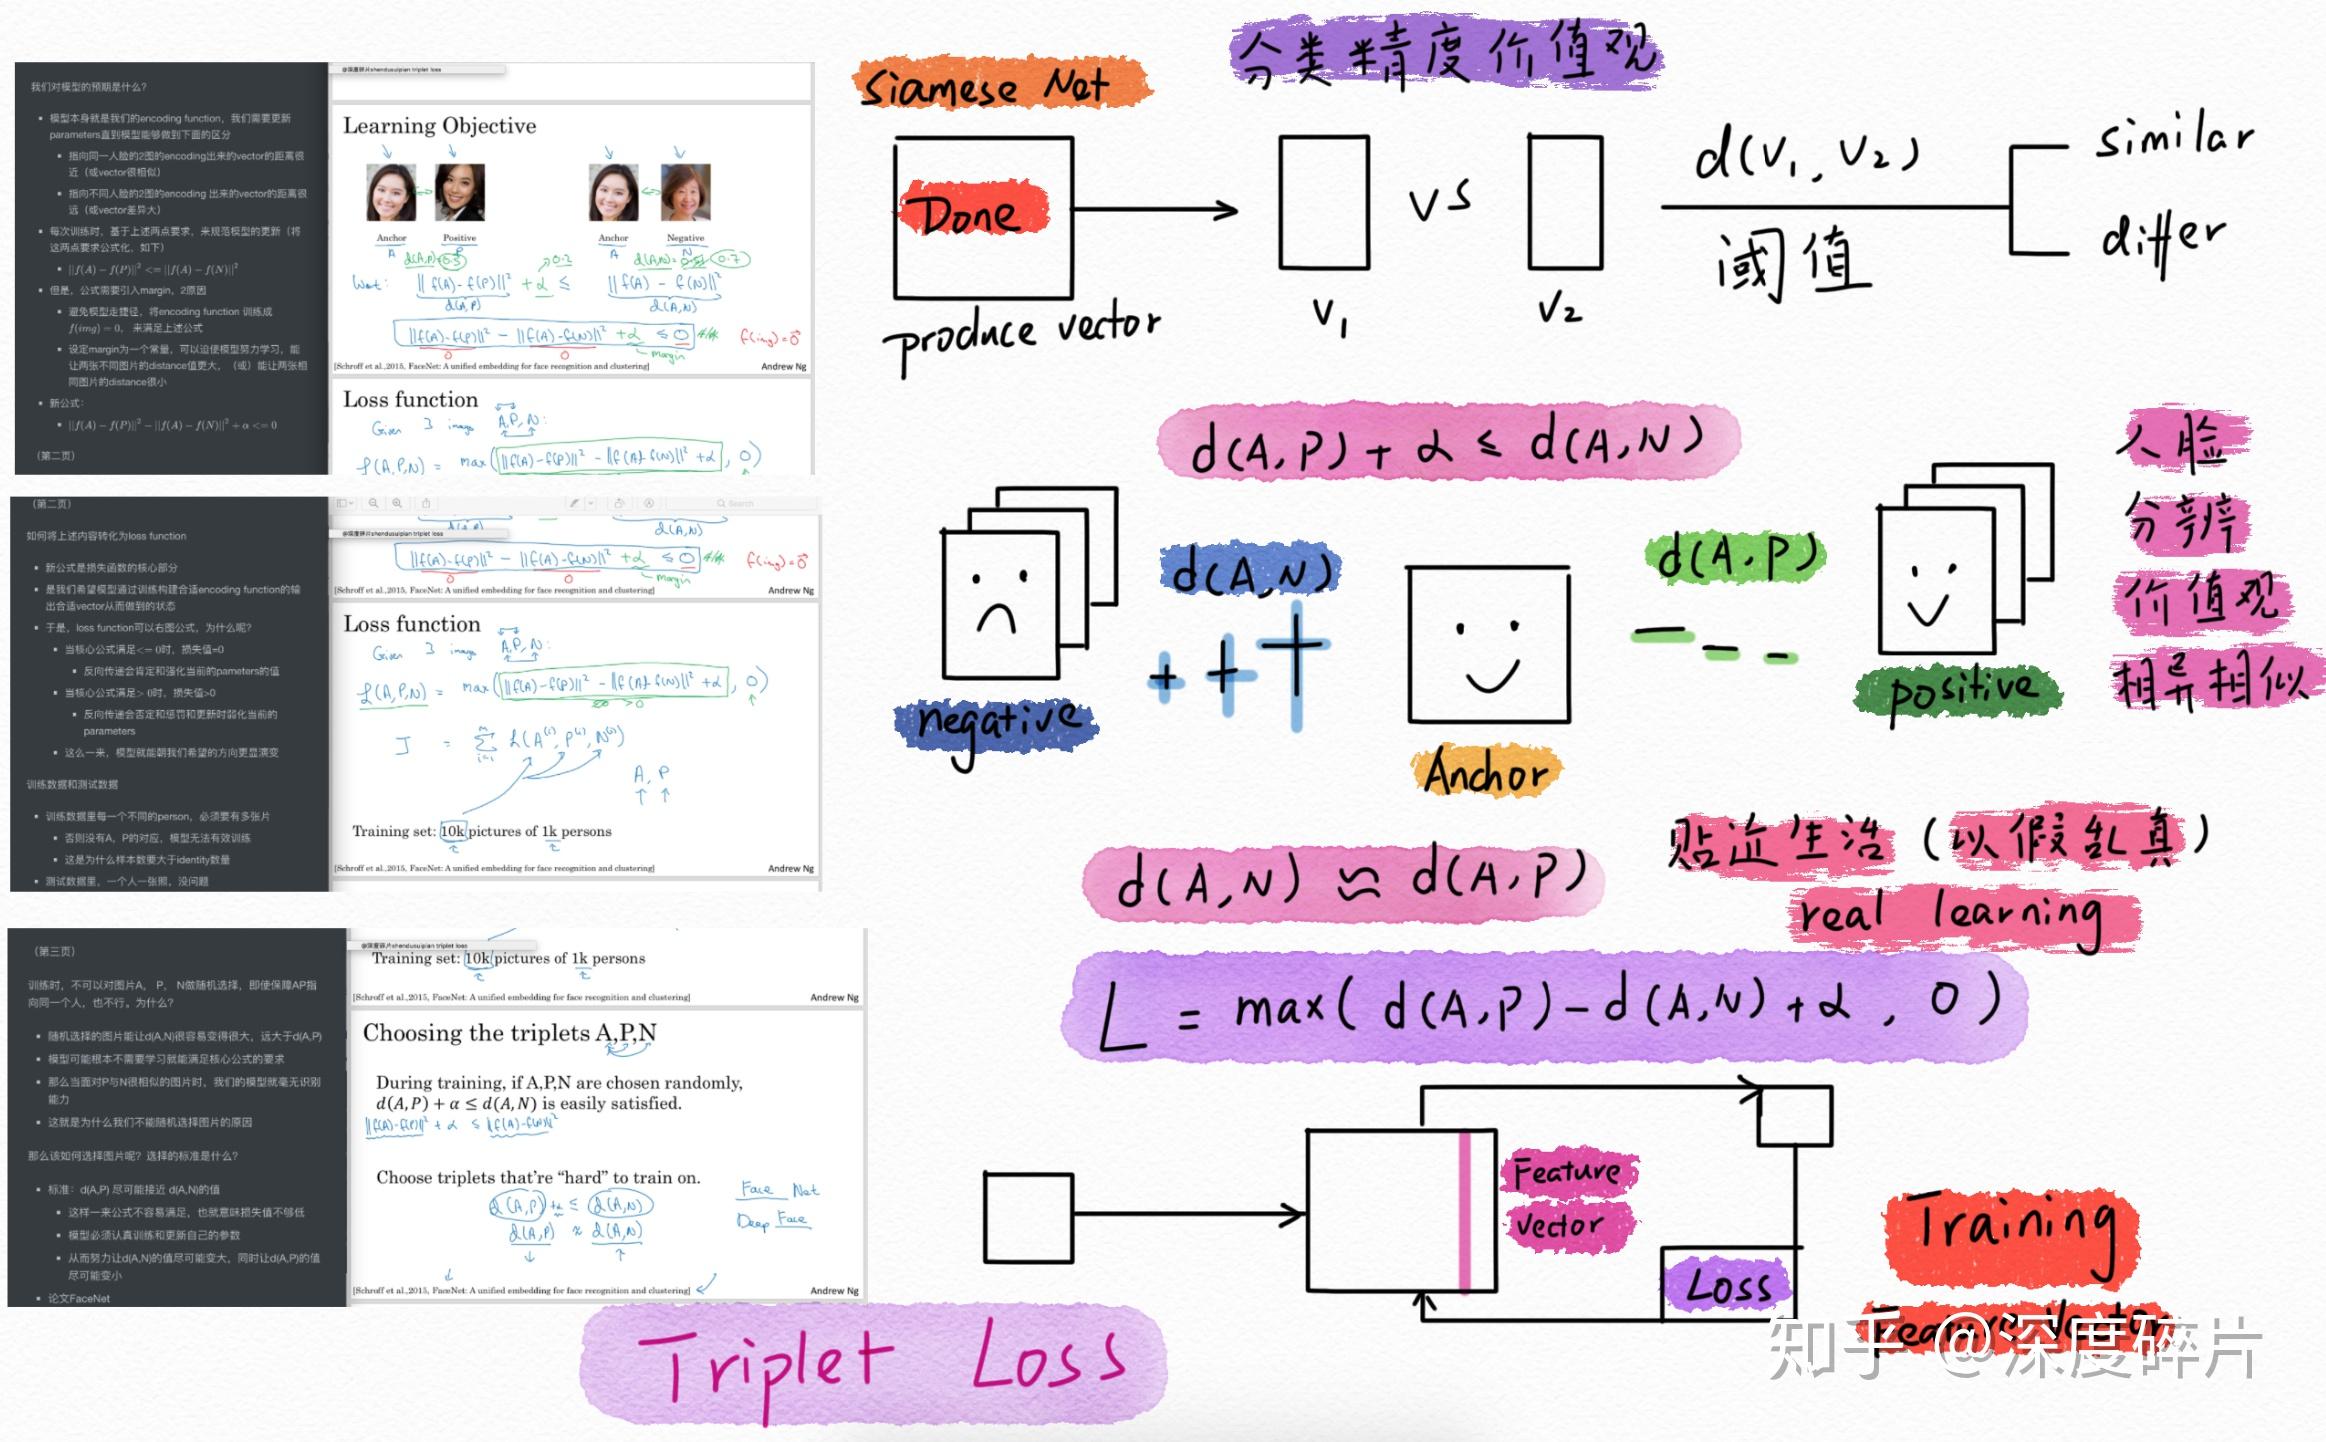 我们对模型的预期是什么?
模型本身就是我们的encoding function，我们需要更新
parameters直到模型能够做到下面的区分
指向同一人脸的2图的encoding出来的vector的距离很
近（或vector很相似）
指向不同人脸的2图的encoding 出来的vector的距离很
远（或vector差异大）
每次训练时，基于上述两点要求，来规范模型的更新（将
这两点要求公式化，如下）
||f(A) − f(P)||² <= ||f(A) − f(N)||²
但是，公式需要引入margin，2原因
避免模型走捷径，将encoding function 训练成
f(img) = 0， 来满足上述公式
设定margin为一个常量，可以迫使模型努力学习，能
让两张不同图片的distance值更大，（或）能让两张相
同图片的distance很小
新公式:
||f(A) − f(P)||² − ||f(A) − f(N)||² + α <= 0
（第二页）
@深度碎片shendusuipian triplet loss
Learning Objective
Anchor Positive Anchor Negative
A P A N
d(A,P)=0.5 0.2 d(A,N)= 0.7
Want: ||f(A)-f(P)||² + α ≤ ||f(A) - f(N)||²
d(A,P) d(A,N)
||f(A)-f(P)||² - ||f(A)-f(N)||² + α ≤ 0 f(img)=0
0 0 margin
[Schroff et al.,2015, FaceNet: A unified embedding for face recognition and clustering] Andrew Ng
Loss function
Given 3 images A,P,N:
L(A,P,N) = max(||f(A)-f(P)||² - ||f(A)-f(N)||² + α, 0)
（第二页）
如何将上述内容转化为loss function
新公式是损失函数的核心部分
是我们希望模型通过训练构建合适encoding function的输
出合适vector从而做到的状态
于是，loss function可以右图公式，为什么呢?
当核心公式满足<= 0时，损失值=0
反向传递会肯定和强化当前的pameters的值
当核心公式满足> 0时，损失值>0
反向传递会否定和惩罚和更新时弱化当前的
parameters
这么一来，模型就能朝我们希望的方向更显演变
训练数据和测试数据
训练数据里每一个不同的person，必须要有多张片
否则没有A，P的对应，模型无法有效训练
这是为什么样本数要大于identity数量
测试数据里，一个人一张照，没问题
Search
d(A,N)
@深度碎片shendusuipian triplet loss
||f(A)-f(P)||² - ||f(A)-f(N)||² + α ≤ 0 f(img)=0
0 0 margin
[Schroff et al.,2015, FaceNet: A unified embedding for face recognition and clustering] Andrew Ng
Loss function
Given 3 images A,P,N:
L(A,P,N) = max(||f(A)-f(P)||² - ||f(A)-f(N)||² + α, 0)
> 0
J = Σ L(A⁽ⁱ⁾, P⁽ⁱ⁾, N⁽ⁱ⁾)
A, P
Training set: 10k pictures of 1k persons
[Schroff et al.,2015, FaceNet: A unified embedding for face recognition and clustering] Andrew Ng
（第三页）
训练时，不可以对图片A， P， N做随机选择，即使保障AP指
向同一个人，也不行。为什么?
随机选择的图片能让d(A,N)很容易变得很大，远大于d(A,P)
模型可能根本不需要学习就能满足核心公式的要求
那么当面对P与N很相似的图片时，我们的模型就毫无识别
能力
这就是为什么我们不能随机选择图片的原因
那么该如何选择图片呢? 选择的标准是什么?
标准：d(A,P) 尽可能接近 d(A,N)的值
这样一来公式不容易满足，也就意味损失值不够低
模型必须认真训练和更新自己的参数
从而努力让d(A,N)的值尽可能变大，同时让d(A,P)的值
尽可能变小
论文FaceNet
@深度碎片shendusuipian triplet loss
Training set: 10k pictures of 1k persons
[Schroff et al.,2015, FaceNet: A unified embedding for face recognition and clustering] Andrew Ng
Choosing the triplets A,P,N
During training, if A,P,N are chosen randomly,
d(A,P) + α ≤ d(A,N) is easily satisfied.
||f(A)-f(P)||² + α ≤ ||f(A)-f(N)||²
Choose triplets that’re “hard” to train on.
d(A,P) + α ≤ d(A,N) Face Net
d(A,P) ≈ d(A,N) Deep Face
[Schroff et al.,2015, FaceNet: A unified embedding for face recognition and clustering] Andrew Ng
分类精度价值观
Siamese Net
Done
produce vector
V₁ vs V₂
d(V₁, V₂)
阈值
similar
differ
d(A,P) + α ≤ d(A,N)
人脸
分辨
价值观
相异相似
d(A,N)
d(A,P)
negative
Anchor
positive
贴近生活（以假乱真）
d(A,N) ≈ d(A,P)
real learning
L = max( d(A,P) - d(A,N) + α , 0 )
Feature
vector
Loss
Training
Feature Vector
知乎 @深度碎片
Triplet Loss